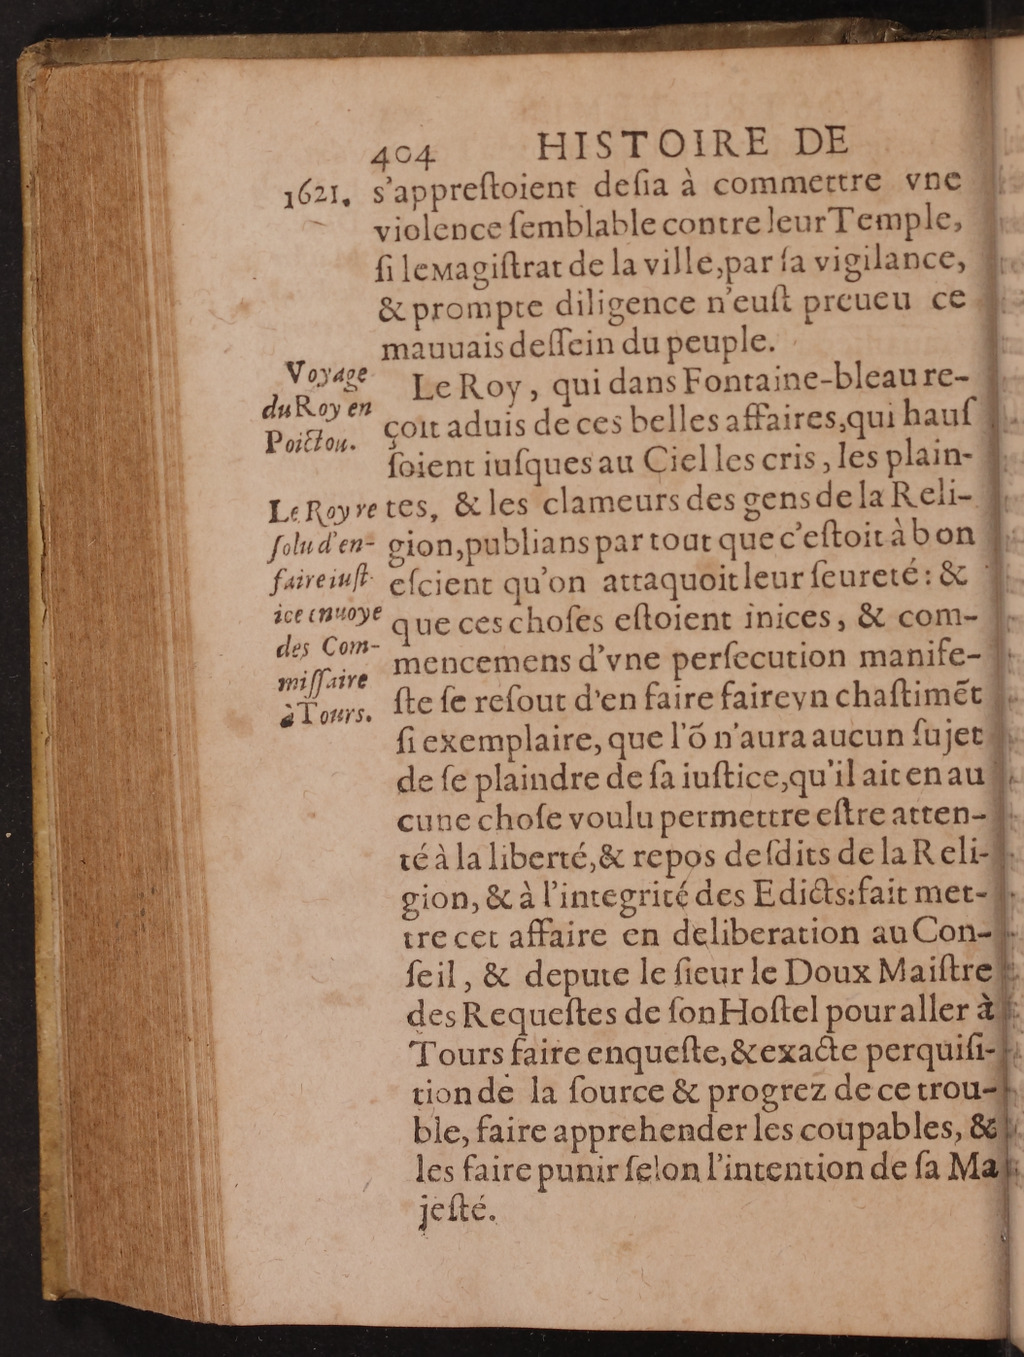 404 HISTOIRE DE
1621. s'appreſtoient deſia à commettre vne
violence ſemblable contre leur Temple,
ſi le Magiſtrat de la ville, par ſa vigilance,
& prompte diligence n'euſt preueu ce
mauuais deſſein du peuple.
Voyage
du Roy en
Poictou.
Le Roy, qui dans Fontaine-bleau re-
çoit aduis de ces belles affaires, qui hauſ
ſoient iuſques au Ciel les cris, les plain-
tes, & les clameurs des gens de la Reli-
gion, publians par tout que c'eſtoit à bon
eſcient qu'on attaquoit leur ſeureté: &
que ces choſes eſtoient inices, & com-
mencemens d'vne perſecution manife-
ſte ſe reſout d'en faire faire vn chaſtimẽt
ſi exemplaire, que l'õ n'aura aucun ſujet
de ſe plaindre de ſa iuſtice, qu'il ait en au
cune choſe voulu permettre eſtre atten-
té à la liberté, & repos deſdits de la Reli-
gion, & à l'integrité des Edicts: fait met-
tre cet affaire en deliberation au Con-
ſeil, & depute le ſieur le Doux Maiſtre
des Requeſtes de ſon Hoſtel pour aller à
Tours faire enqueſte, & exacte perquiſi-
tion de la ſource & progrez de ce trou-
ble, faire apprehender les coupables, &
les faire punir ſelon l'intention de ſa Ma
jeſté.
Le Roy re
ſolu d'en-
faire iuſt-
ice enuoye
des Com-
miſſaire
à Tours.